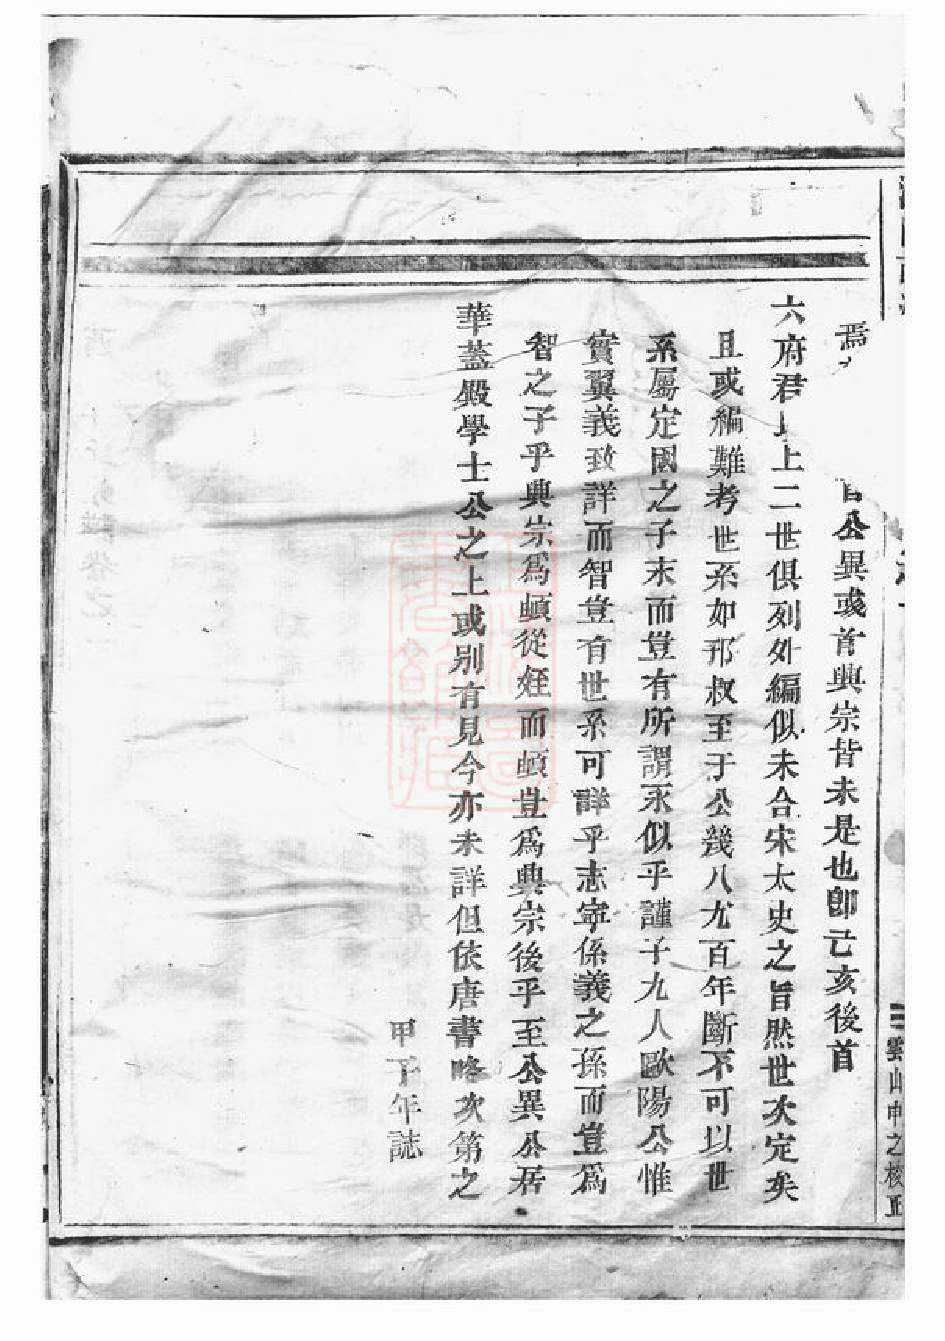 雲山中之校正
焉 公異或首興宗皆未是也卽亡亥後首
六府君 上二世俱列外編似未合宋太史之旨然世次定矣
且或編難考世系如邗叔至于公幾八尤百年斷不可以世
系屬定國之子末而豈有所謂永似乎謹子九人歐陽公惟
實翼義致詳而智豈有世系可詳乎志寧係義之孫而豈爲
智之子乎興宗爲頔從姪而頔豈爲興宗後乎至公異公居
華蓋殿學士公之上或別有見今亦未詳但依唐書略次第之
甲子年誌